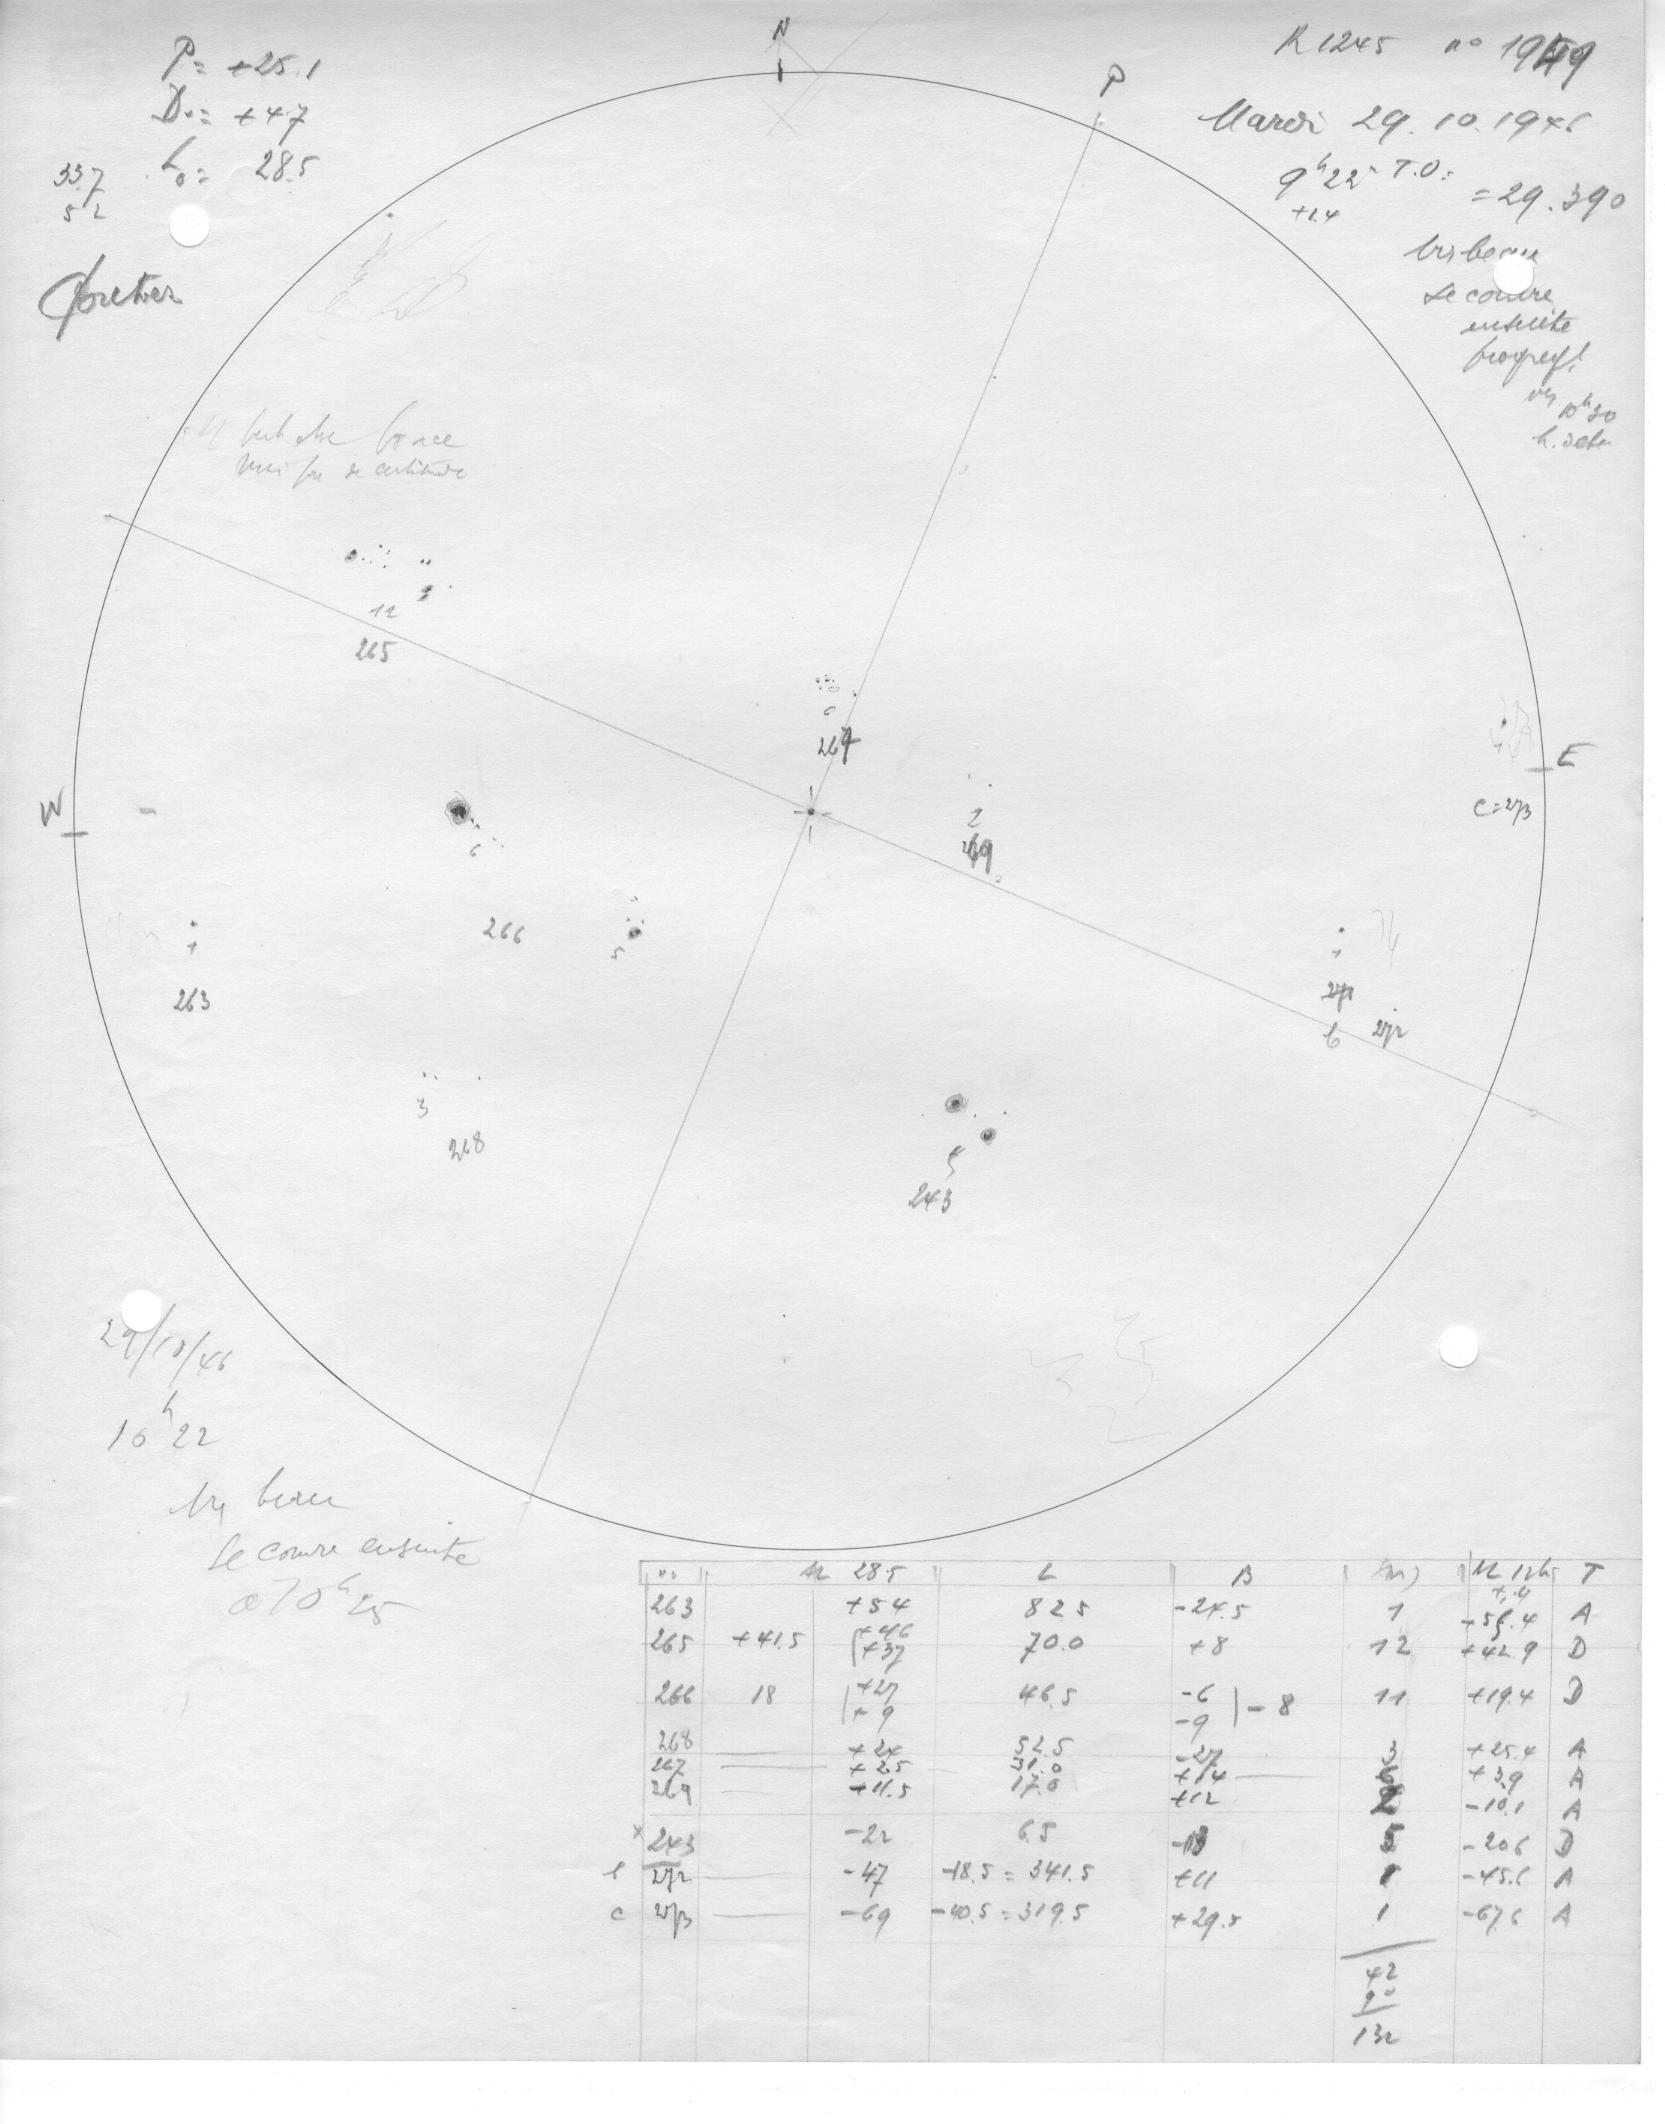 P = +25.1
D₀ = +4.7
L₀ = 28.5
33.7
5 2
N
P
R 1245 n° 1949
Mardi 29.10.1946
9ʰ22ᵐ T.O. = 29.390
+1.4
très beau
se couvre
ensuite
vers 10ʰ30
12
265
6
267
E
c = 273
W
6
2
269
266
5
1
263
1
271
b
272
3
268
5
243
29/10/46
10ʰ22
très beau
se couvre ensuite
à 10ʰ25
n° M 28.5 L B M 12h T
+1.4
263 +54 82.5 -24.5 1 +55.4 A
265 +41.5 +46 +37 70.0 +8 12 +42.9 D
266 18 +27 +9 46.5 -6 -9 -8 11 +19.4 D
268 +24 52.5 -27 3 +25.4 A
267 +2.5 31.0 +14 6 +3.9 A
269 -11.5 17.0 +12 2 -10.1 A
x 243 -22 6.5 -18 5 -20.6 D
b 272 -47 -18.5 = 341.5 +11 1 -45.6 A
c 273 -69 -40.5 = 319.5 +29.5 1 -67.6 A
42
90
132